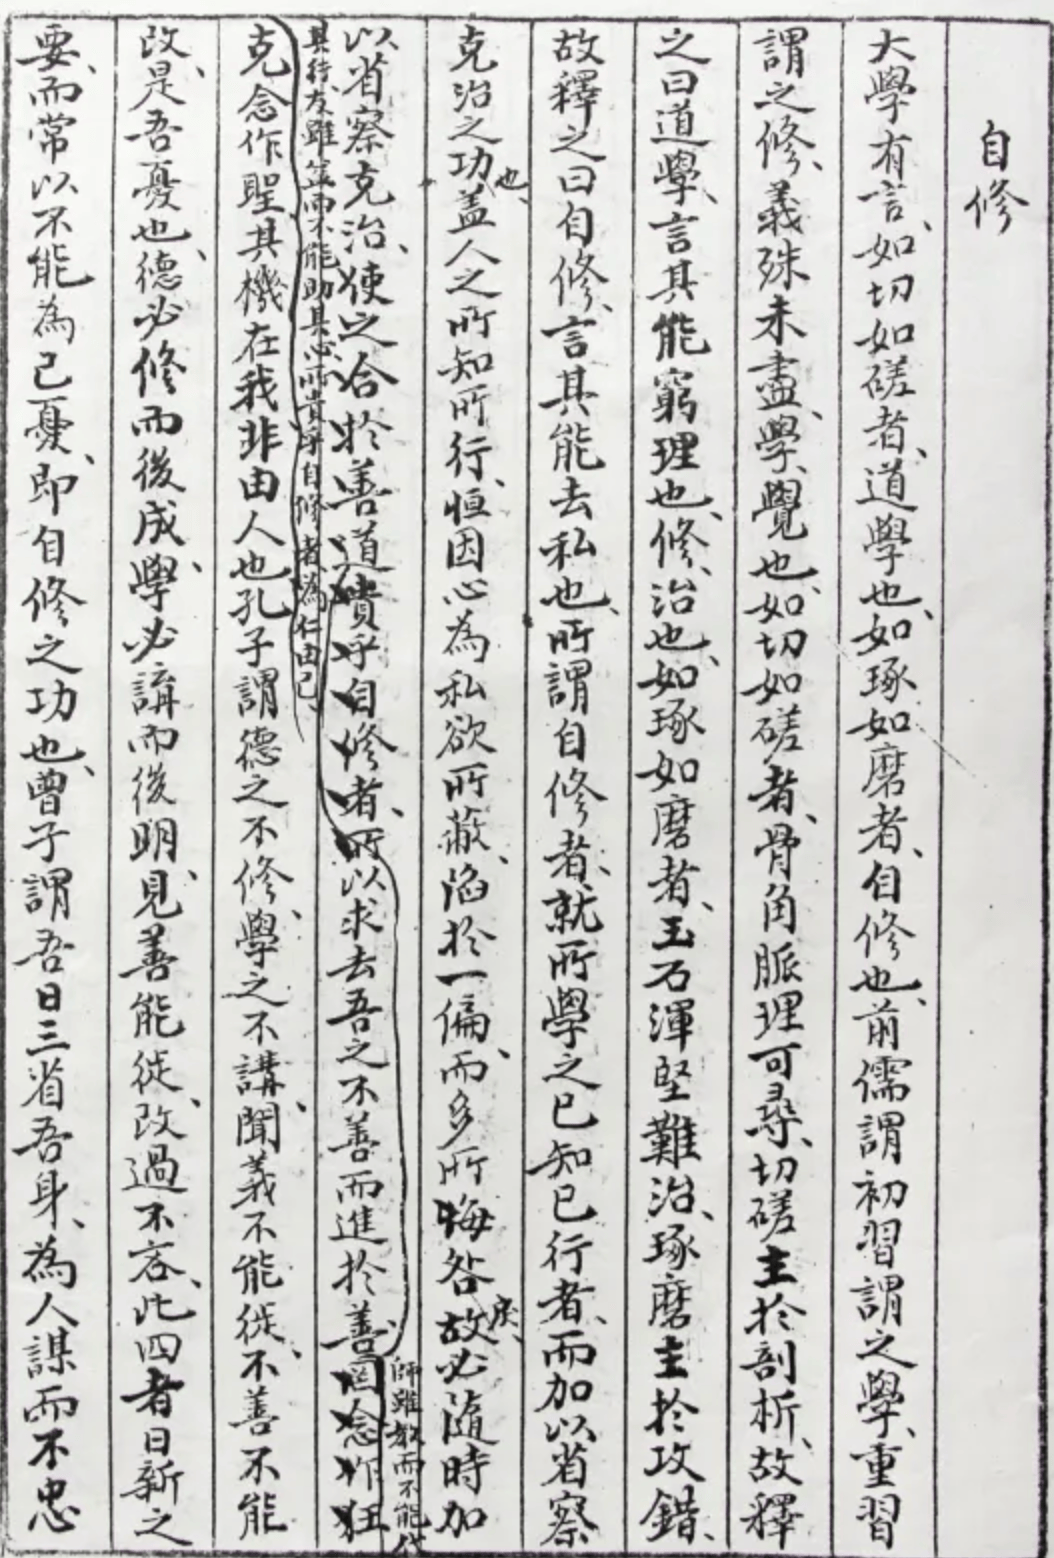 自修
大學有言、如切如磋者、道學也、如琢如磨者、自修也、前儒謂初習謂之學、重習
謂之修、義殊未盡、學、覺也、如切如磋者、骨角脈理可尋、切磋主於剖析、故釋
之曰道學、言其能窮理也、修、治也、如琢如磨者、玉石渾堅難治、琢磨主於攻錯、
故釋之曰自修、言其能去私也、所謂自修者、就所學之已知已行者、而加以省察
克治之功也、蓋人之所知所行、恒因心為私欲所蔽、陷於一偏、而多所悔咎戾、故必隨時加
以省察克治、使之合於善道、貴乎自修者、所以求去吾之不善而進於善、罔念作狂
師雖教而不能代
其待友雖并而不能助其心、所貴乎自修者為仁由己、
克念作聖、其機在我、非由人也、孔子謂德之不修、學之不講、聞義不能徙、不善不能
改、是吾憂也、德必修而後成、學必講而後明、見善能徙、改過不吝、此四者日新之
要、而常以不能為己憂、即自修之功也、曾子謂吾日三省吾身、為人謀而不忠